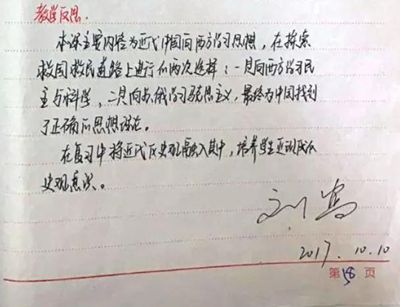 教学反思:
本课主要内容为近代中国向西方学习思想,在探索
救国救民道路上进行的两次选择:一是向西方学习民
主与科学,二是向苏俄学习马克思主义,最终为中国找到
了正确的思想理论。
在复习中将近代反史观融入其中,培养学生
史观意识。
2017.10.10
第 15 页